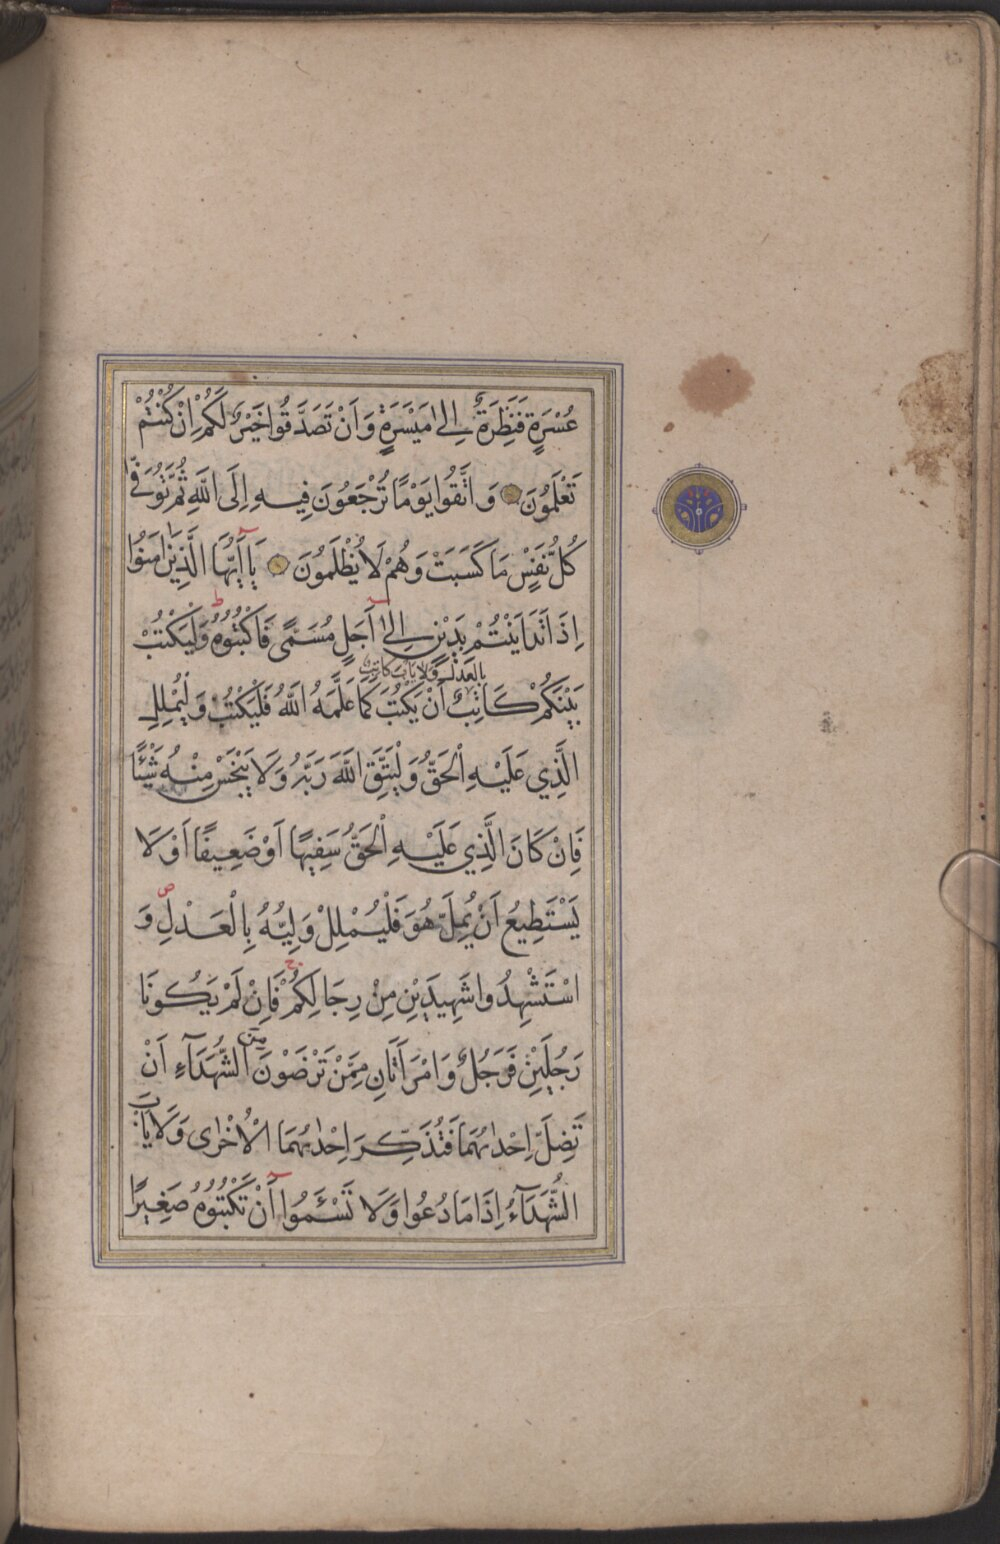 عُسْرَةٍ فَنَظِرَةٌ اِلىٰ مَيْسَرَةٍ وَاَنْ تَصَدَّقُوا خَيْرٌ لَكُمْ اِنْ كُنْتُمْ
تَعْلَمُونَ وَاتَّقُوا يَوْمًا تُرْجَعُونَ فِيهِ اِلَى اللّٰهِ ثُمَّ تُوَفّٰى
كُلُّ نَفْسٍ مَا كَسَبَتْ وَهُمْ لَا يُظْلَمُونَ يَٓا اَيُّهَا الَّذِينَ اٰمَنُوا
اِذَا تَدَايَنْتُمْ بِدَيْنٍ اِلىٰٓ اَجَلٍ مُسَمًّى فَاكْتُبُوهُ ط وَلْيَكْتُبْ
بَيْنَكُمْ كَاتِبٌ بِالْعَدْلِ وَلَا يَأْبَ كَاتِبٌ اَنْ يَكْتُبَ كَمَا عَلَّمَهُ اللّٰهُ فَلْيَكْتُبْ وَلْيُمْلِلِ
الَّذِي عَلَيْهِ الْحَقُّ وَلْيَتَّقِ اللّٰهَ رَبَّهُ وَلَا يَبْخَسْ مِنْهُ شَيْئًا
فَاِنْ كَانَ الَّذِي عَلَيْهِ الْحَقُّ سَفِيهًا اَوْ ضَعِيفًا اَوْ لَا
يَسْتَطِيعُ اَنْ يُمِلَّ هُوَ فَلْيُمْلِلْ وَلِيُّهُ بِالْعَدْلِ ص وَ
اسْتَشْهِدُوا شَهِيدَيْنِ مِنْ رِجَالِكُمْ ج فَاِنْ لَمْ يَكُونَا
رَجُلَيْنِ فَرَجُلٌ وَامْرَاَتَانِ مِمَّنْ تَرْضَوْنَ مِنَ الشُّهَدَٓاءِ اَنْ
تَضِلَّ اِحْدٰىهُمَا فَتُذَكِّرَ اِحْدٰىهُمَا الْاُخْرٰى وَلَا يَاْبَ
الشُّهَدَٓاءُ اِذَا مَا دُعُوا وَلَا تَسْـَٔمُوٓا اَنْ تَكْتُبُوهُ صَغِيرًا